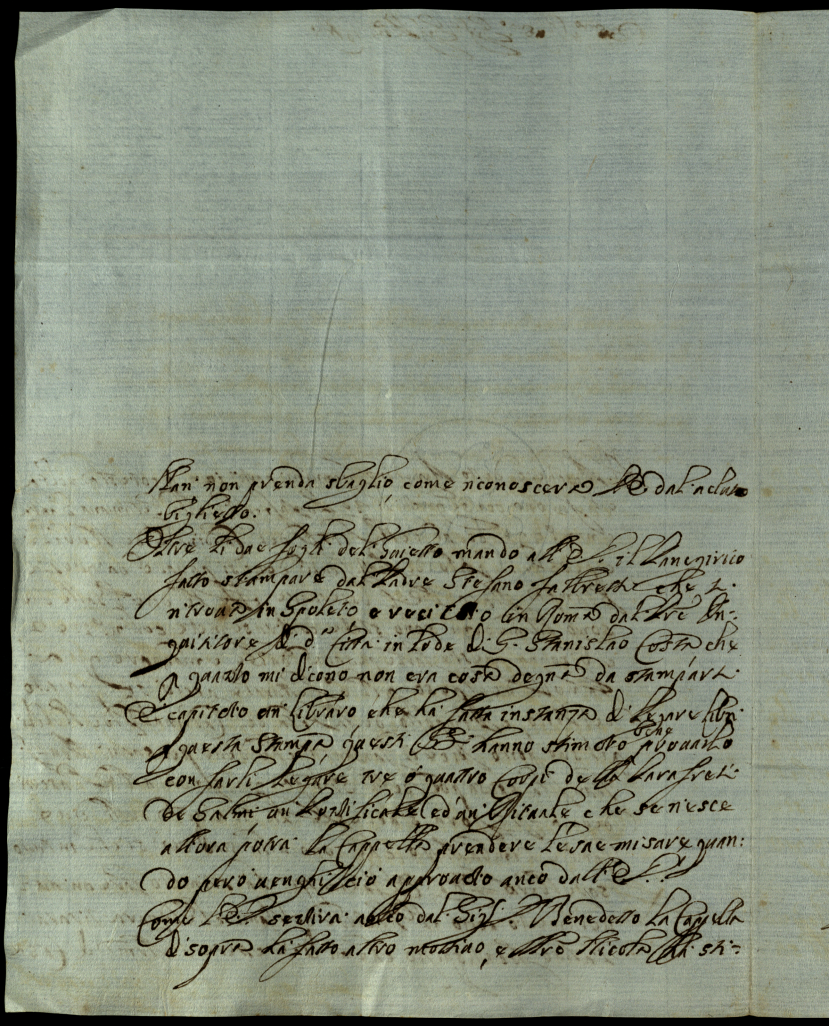 non prenda sbaglio, come riconoscerà dal acluso
biglietto.
Oltre li due fogli del Gaietto mando all il Panegirico
fatto stampare dal Padre Stefano che si
ritroua in Spoleto e recitato in Roma dal Pre In-
quisitore di d.ª Città in lode di S. Stanislao Costa che
p quanto mi dicono non era cosa degna da stampars
È capitato un libraro che ha fatta instanza di legare libri
p questa stampa questi hanno stimato bene prouarlo
con farli legare tre o quattro corpi della Parafrasi
De Salmi un Pontificale ed un Rituale che se riesce
allora potrà la Cappella prendere le sue misure quan:
do però uenghi ciò approuato anco dall
Come sentirà dal Sig. Benedetto la Cappella
di sopra ha fatto altro motiuo, e Nicola ha sti-